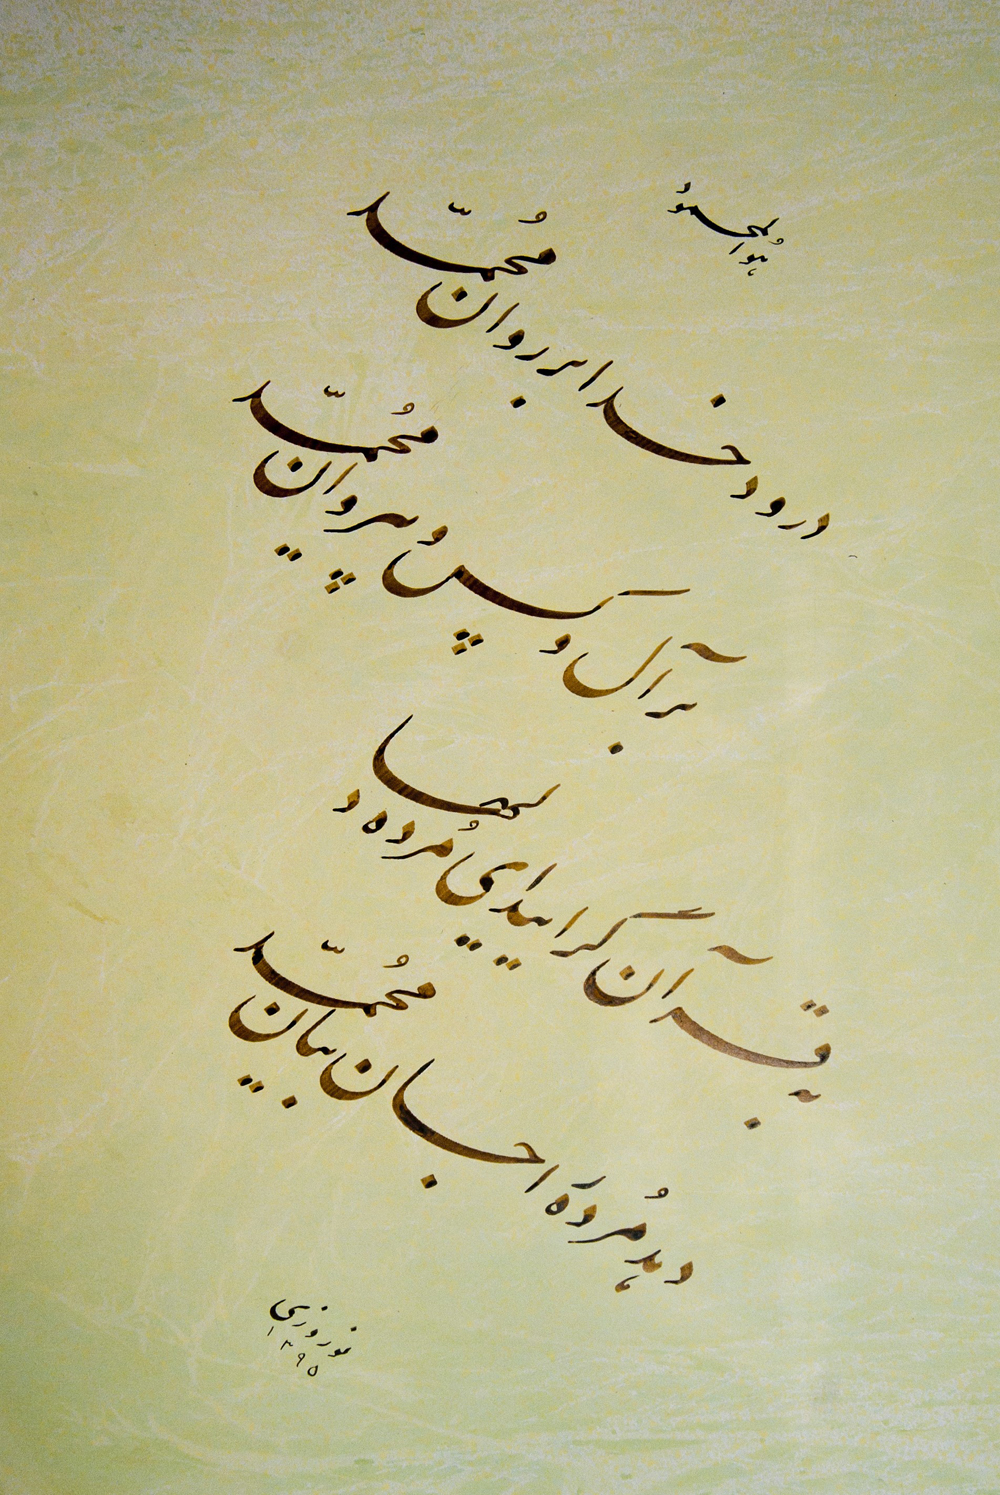 هُوالمحمود
درود خدا بر روان مُحمّد
بر آل و کس و پیروان مُحمّد
به قرآن گر آیید ای مُرده دلها
دهد مُرده را جان بیان مُحمّد
نوروزی
۱۳۹۵